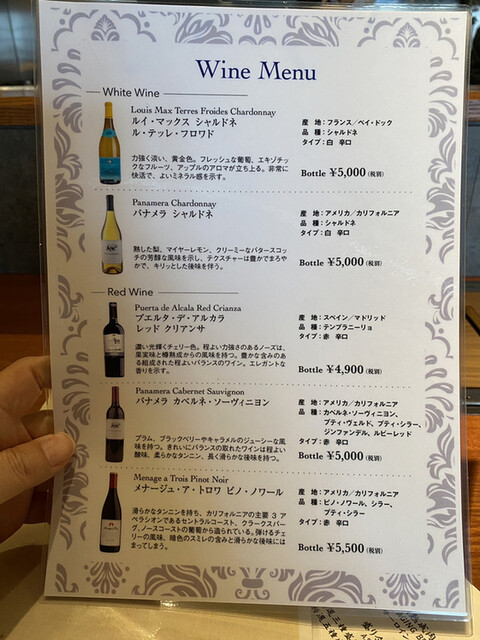 Wine Menu
White Wine
Louis Max Terres Froides Chardonnay
ルイ・マックス シャルドネ
ル・テッレ・フロワド
産 地：フランス／ペイ・ドック
品 種：シャルドネ
タイプ：白 辛口
力強く淡い、黄金色。フレッシュな葡萄、エキゾチッ
クなフルーツ、アップルのアロマが立ち上る。非常に
快活で、よいミネラル感を示す。
Bottle ¥5,000（税別）
Panamera Chardonnay
パナメラ シャルドネ
産 地：アメリカ／カリフォルニア
品 種：シャルドネ
タイプ：白 辛口
熟した梨、マイヤーレモン、クリーミーなバタースコッ
チの芳醇な風味を示し、テクスチャーは豊かでまろや
かで、キリッとした後味を伴う。
Bottle ¥5,000（税別）
Red Wine
Puerta de Alcala Red Crianza
プエルタ・デ・アルカラ
レッド クリアンサ
産 地：スペイン／マドリッド
品 種：テンプラニーリョ
タイプ：赤 辛口
濃い光輝くチェリー色。程よい力強さのあるノーズは、
果実味と樽熟成からの風味を持つ。豊かな含みのあ
る組成された程よいバランスのワイン。エレガント
な香りを示す。
Bottle ¥4,900（税別）
Panamera Cabernet Sauvignon
パナメラ カベルネ・ソーヴィニヨン
産 地：アメリカ／カリフォルニア
品 種：カベルネ・ソーヴィニヨン、
プティ・ヴェルド、プティ・シラー、
ジンファンデル、ルビーレッド
タイプ：赤 辛口
プラム、ブラックベリーやキャラメルのジューシーな風
味を持つ。きれいにバランスの取れたワインは程よい
酸味、柔らかなタンニン、長く滑らかな後味を持つ。
Bottle ¥5,000（税別）
Menage a Trois Pinot Noir
メナージュ・ア・トロワ ピノ・ノワール
産 地：アメリカ／カリフォルニア
品 種：ピノ・ノワール、シラー、
プティ・シラー
タイプ：赤 辛口
滑らかなタンニンを持ち、カリフォルニアの主要 3 ア
ペラシオンであるセントラルコースト、クラークスバー
グ、ノースコーストの葡萄から造られている。弾けるチェ
リーの風味。暗色のスミレの含みと滑らかな後味には
まってしまう。
Bottle ¥5,500（税別）